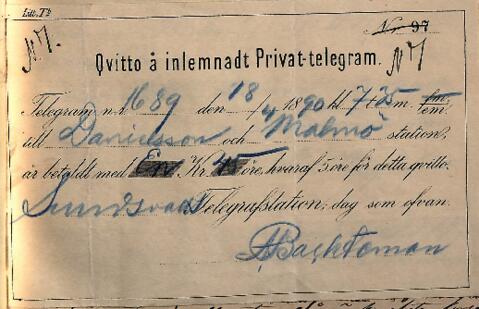 Litt. Tb
Nr 97
N 7. N 7
Qvitto å inlemnadt Privat-telegram.
Telegram n:r 1689 den 18/4 1890 kl 7 t 35 m. fm. em.
till Danielsson och Malmö station,
är betaldt med Kr. 45 öre, hvaraf 5 öre för detta qvitto.
Sundsvalls Telegrafstation, dag som ofvan.